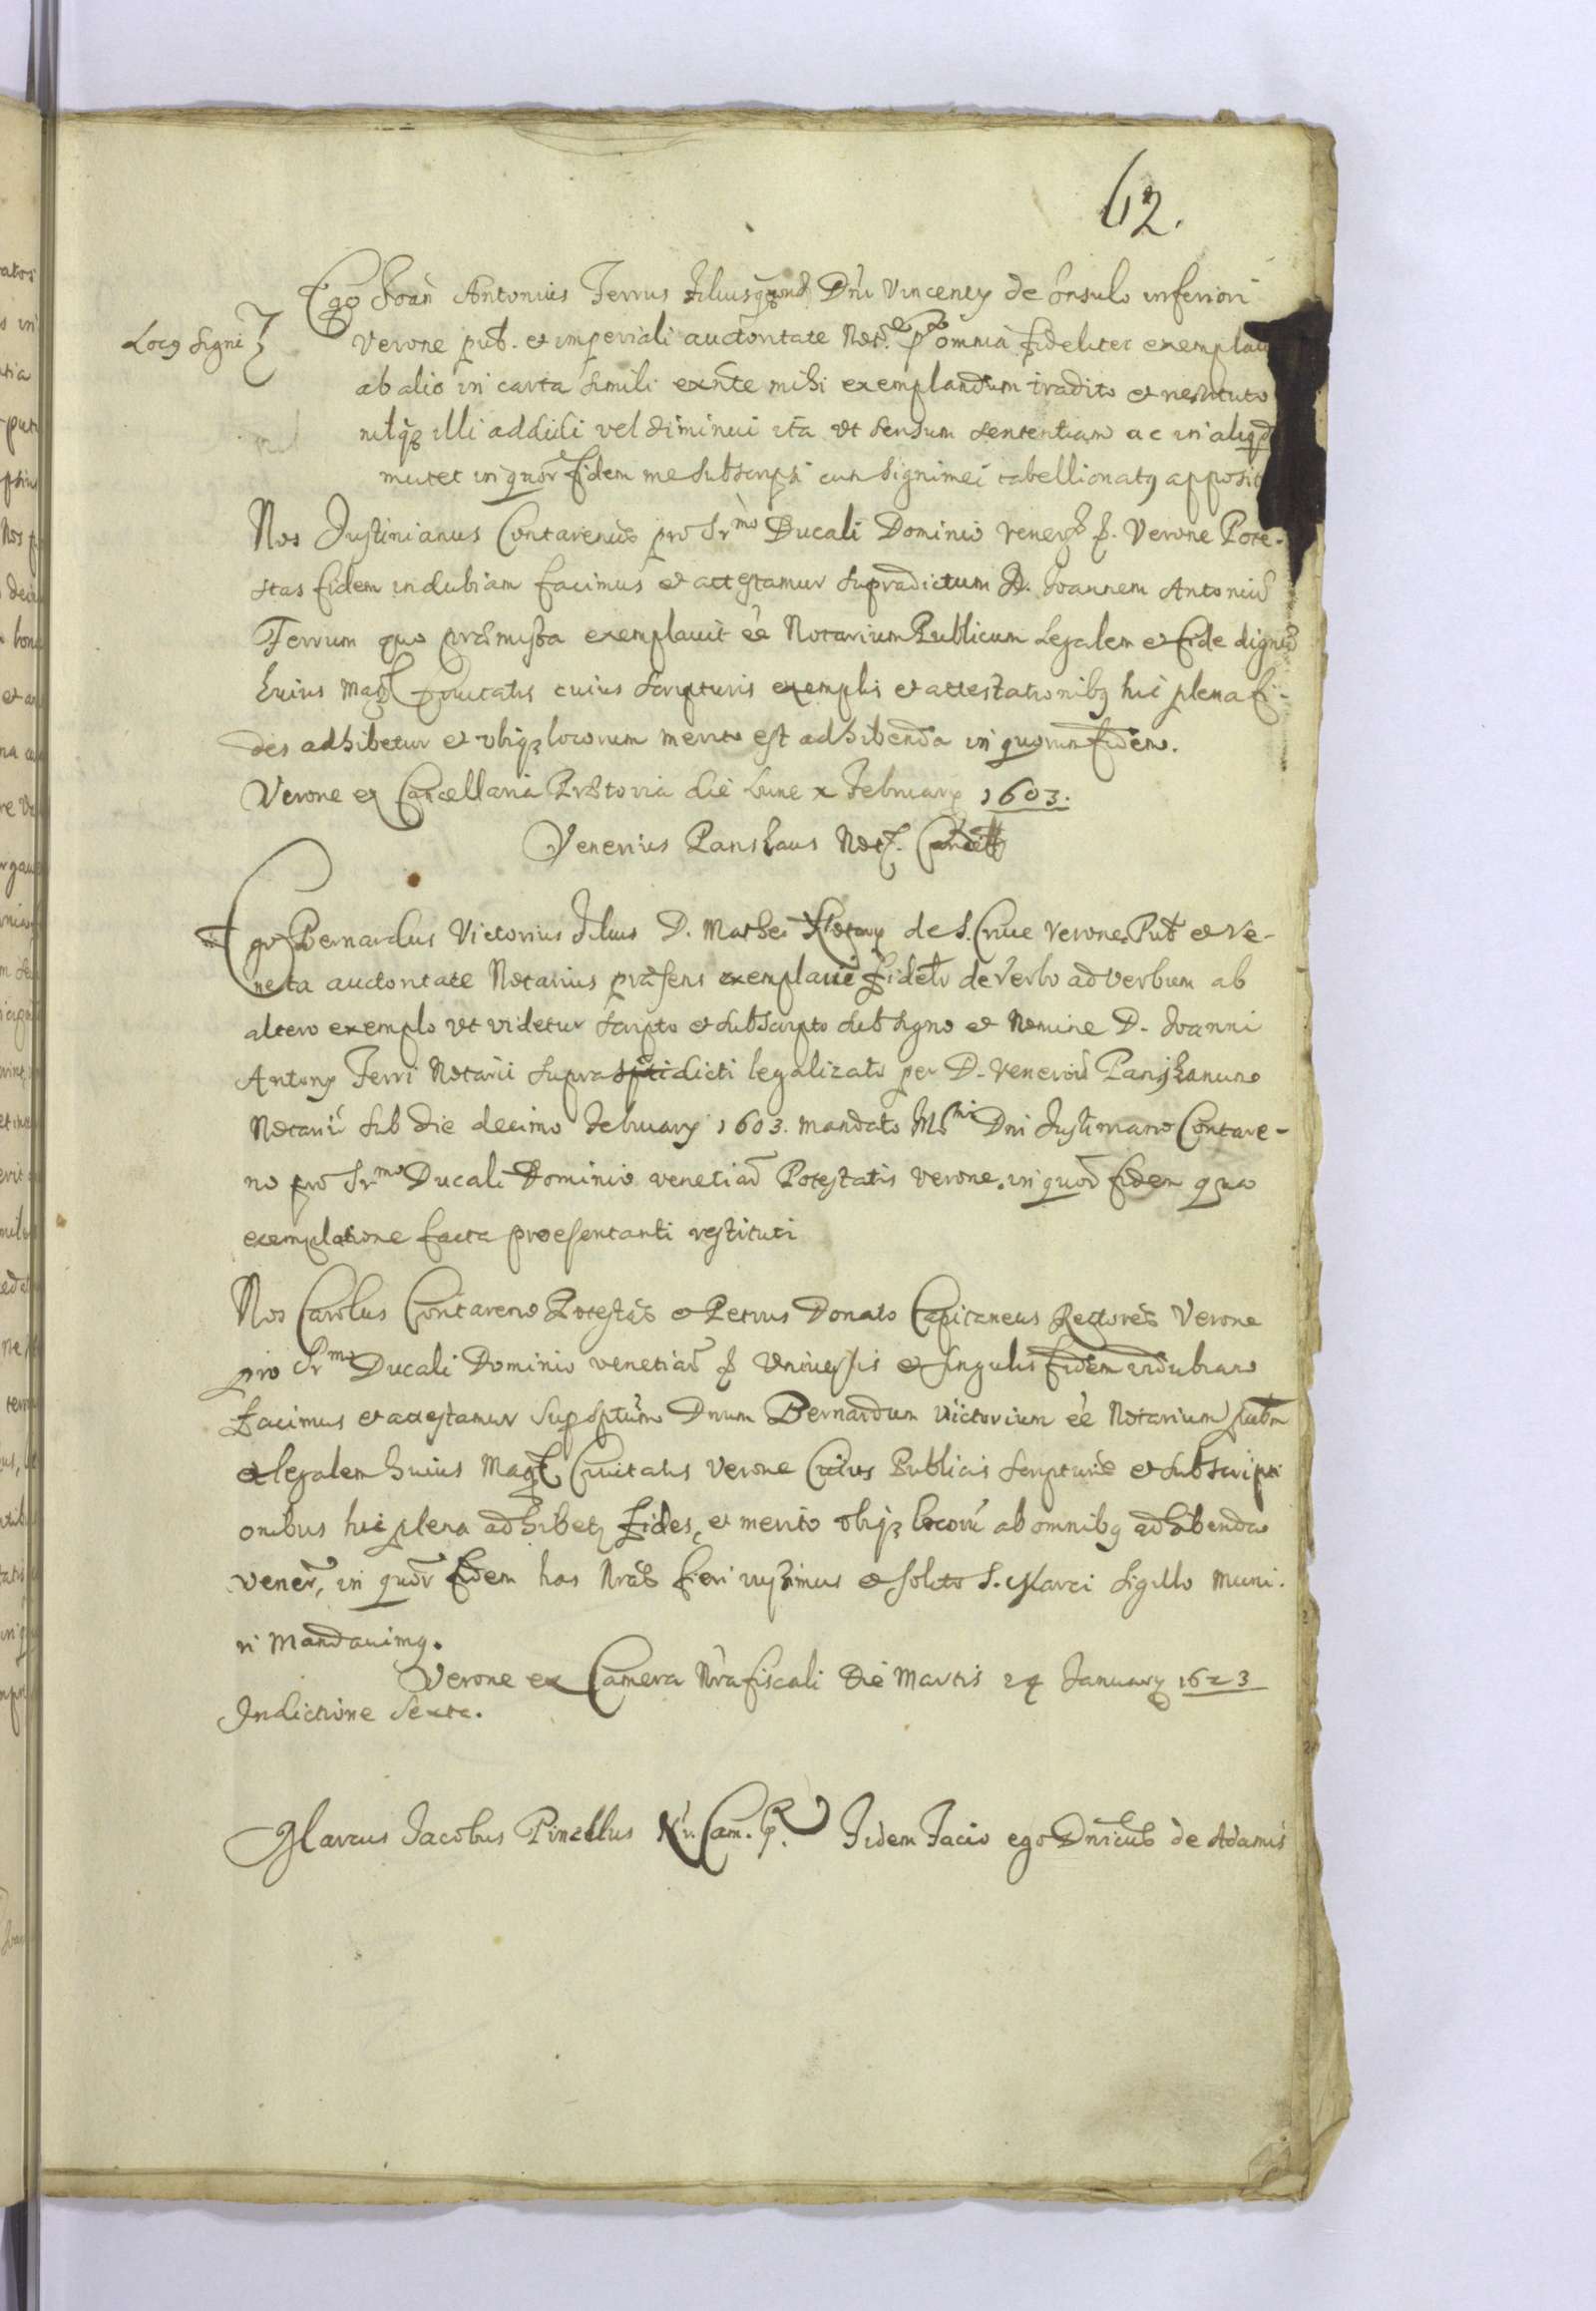 62.
Ego Joan Antonius Ferrus filius quond Dni Vincentij de Insulo inferiori
Locus Signi
Verone pub. et imperiali auctoritate Not. omnia fideliter exemplavi
ab alio in carta simili exnte mihi exemplandum tradito et restituto
nilq3 illi addidi vel diminui ita vt sensum sententiam ac in aliqd
mutet in quor fidem me subscripsi cum signi mei tabellionatus apposit
Nos Justinianus Contarenus pro Srmo Ducali Dominio Verone Pote-
stas fidem indubiam facimus et attestamur supradictum D. Joannem Antoniu
Ferrum qui præmissa exemplavit ee Notarium Publicum Legalem et fide dignu
huius Mag Civitatis cuius scripturis exemplis et attestationibus hic plena fi-
des adhibetur et vbiq3 locorum merito est adhibenda in quorum fidem.
Verone ex Cancellaria Prætoria die Lune x Februarij 1603.
Venerius Not.
Ego Bernardus Victorius filius D. Mathei Notarij de S. Cruce Verone Pub et Ve-
neta auctoritate Notarius præsens exemplavi fidelr de verbo ad verbum ab
altero exemplo vt videtur scripto et subscripto sub signo et Nomine D. Joanni
Antonij Ferri Notarii supra dicti legalizato per D. Veneriu
Notariu sub die decimo Februarij 1603. mandato Dni Justiniano Contare-
no pro Srmo Ducali Dominio venetiar Potestatis Verone. in quor fidem qua
exemplatione facta præsentanti restituti
Nos Carolus Contareno Potestas et Petrus Donato Capitaneus Rectores Verone
pro Srmo Ducali Dominio venetiar p Universis et singulis fidem indubiam
facimus et attestamur Dnum Bernardum Victorium ee Notarium pubm
et legalem huius Mag Civitatis Verone Cuius Publicis scripturis et subscripti
onibus hic plena adhibetr fides, et merito vbiq3 locoru ab omnibus adhibenda
vener, in quor fidem has Nras fieri iussimus et solito S. Marci sigillo muni-
ri Mandavimus.
Verone ex Camera Nra fiscali Die Martis 24 Januarij 1623
Indictione Sexta.
Marcus Jacobus Pinellus Nr. Cam. fidem facio ego Dnicus de Adamis